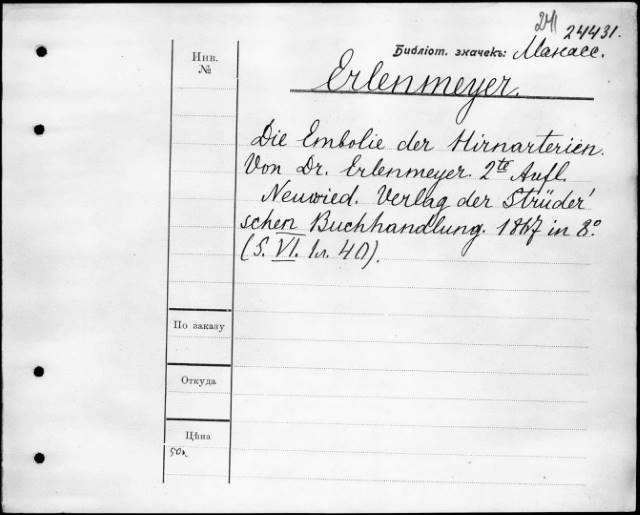 24431.
Инв.
№
Библіот. значекъ: Манасс.
Erlenmeyer.
Die Embolie der Hirnarterien.
Von Dr. Erlenmeyer. 2te Aufl.
Neuwied. Verlag der Strüder'
schen Buchhandlung. 1867 in 8o.
(S. VI. 1л. 40).
По заказу
Откуда
Цѣна
50к